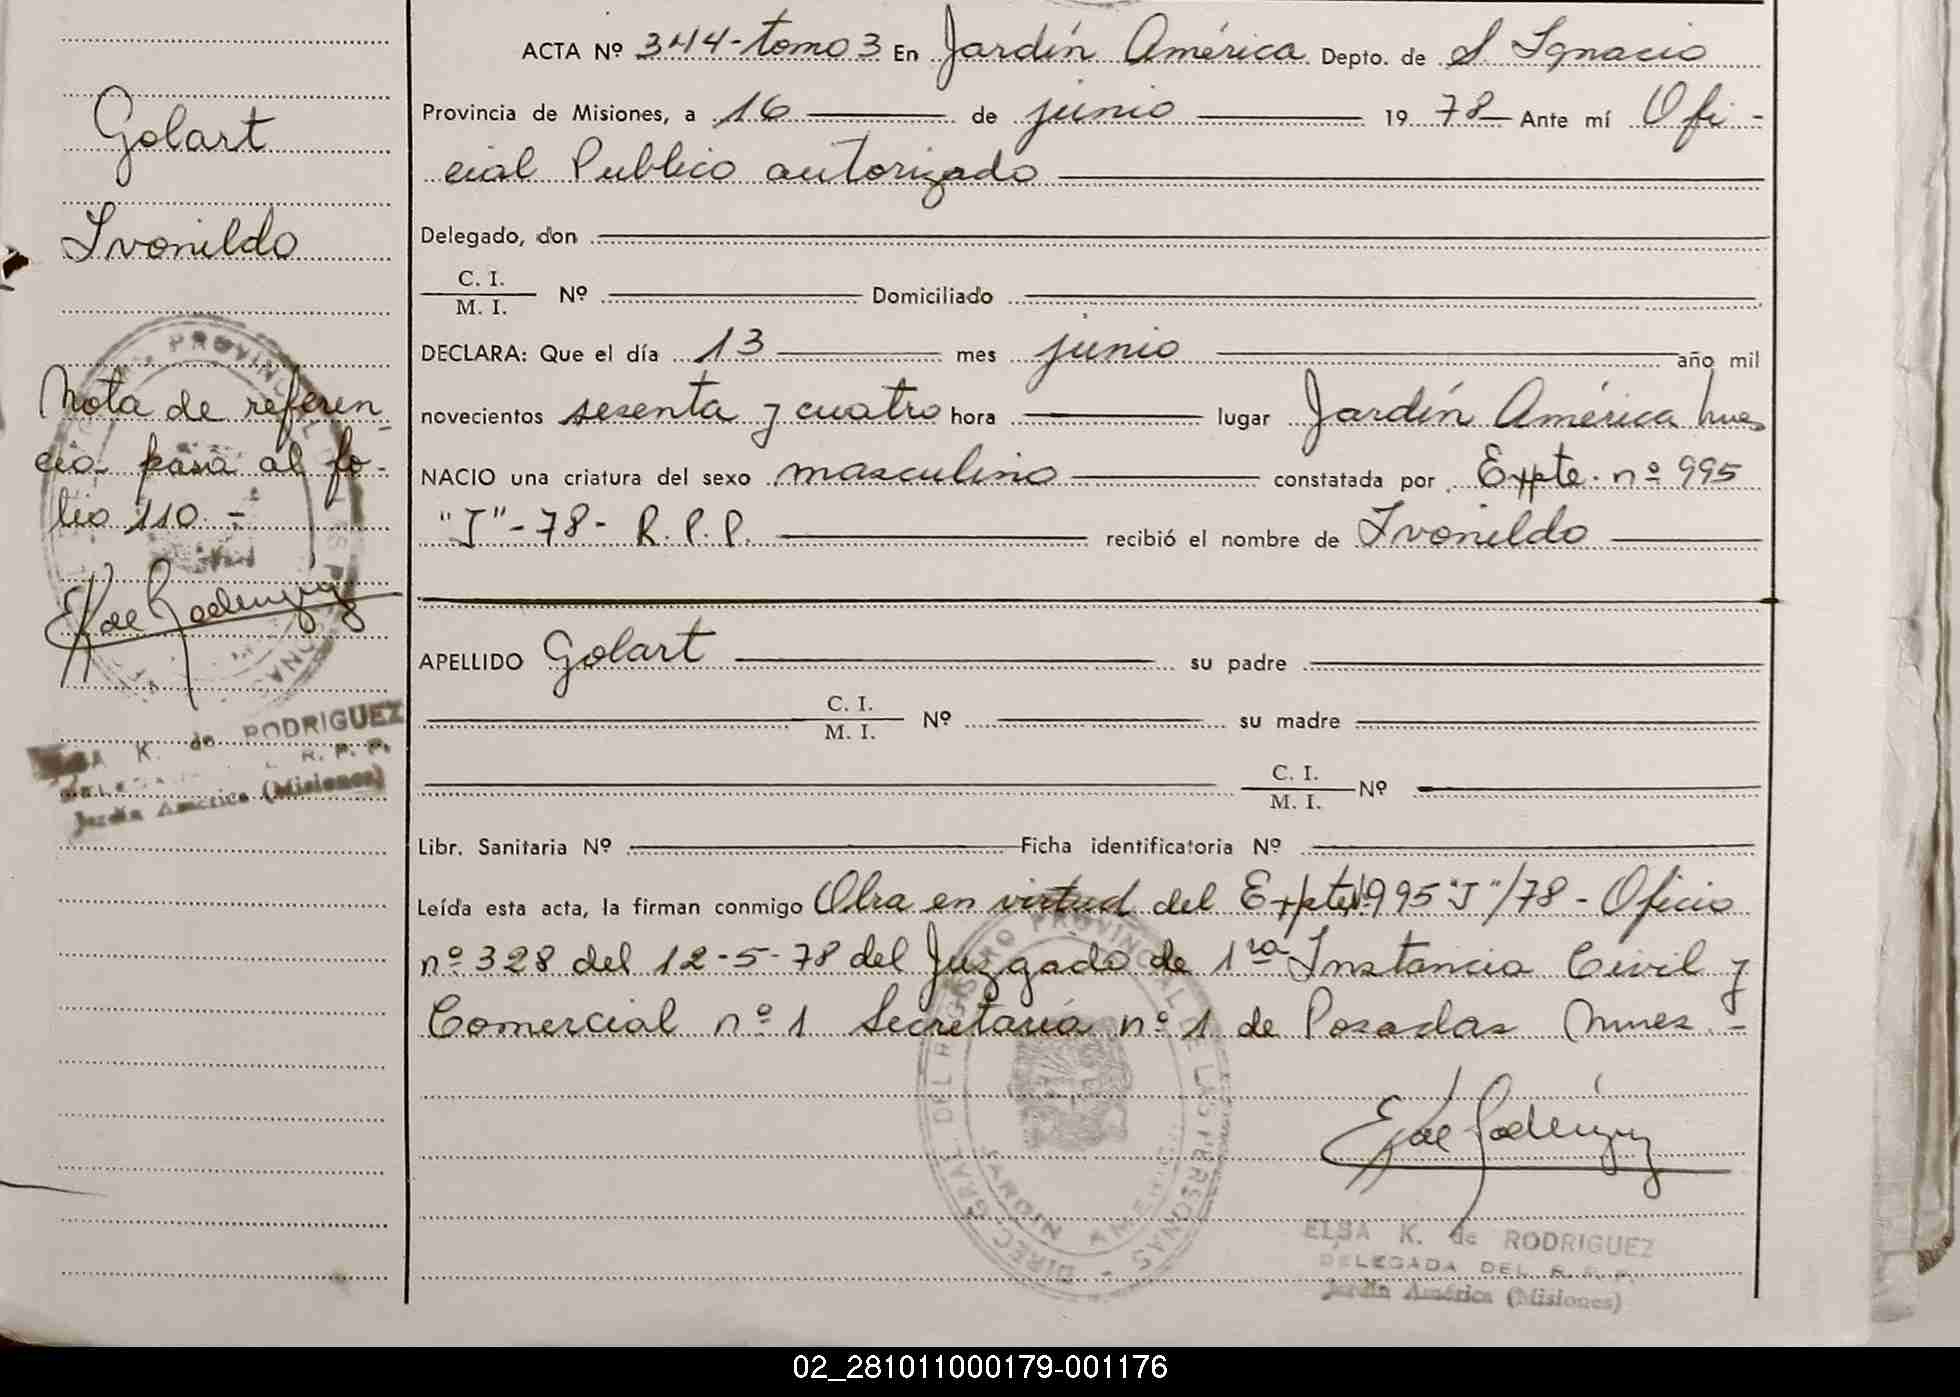 Golart
Ivonildo
Nota de referen
cia pasa al fo-
lio 110.-
ELSA K. de RODRIGUEZ
R. P. P.
Jardín América (Misiones)
ACTA Nº 344-tomo 3 En Jardín América Depto. de S. Ignacio
Provincia de Misiones, a 16 de junio 1978 Ante mí Ofi-
cial Publico autorizado
Delegado, don
C. I.
M. I. Nº Domiciliado
DECLARA: Que el día 13 mes junio año mil
novecientos sesenta y cuatro hora lugar Jardín América
NACIO una criatura del sexo masculino constatada por Expte. nº 995
"J"-78- R. P. P. recibió el nombre de Ivonildo
APELLIDO Golart su padre
C. I.
M. I. Nº su madre
C. I.
M. I. Nº
Libr. Sanitaria Nº Ficha identificatoria Nº
Leída esta acta, la firman conmigo Obra en virtud del Expte Nº 995 "J"/78 - Oficio
nº 328 del 12-5-78 del Juzgado de 1ra Instancia Civil y
Comercial nº 1 Secretaría nº 1 de Posadas Mnes -
DIREC. GRAL. DEL REGISTRO PROVINCIAL DE LAS PERSONAS
JARDIN AMERICA
ELSA K. de RODRIGUEZ
DELEGADA DEL R. P. P.
Jardín América (Misiones)
02_281011000179-001176